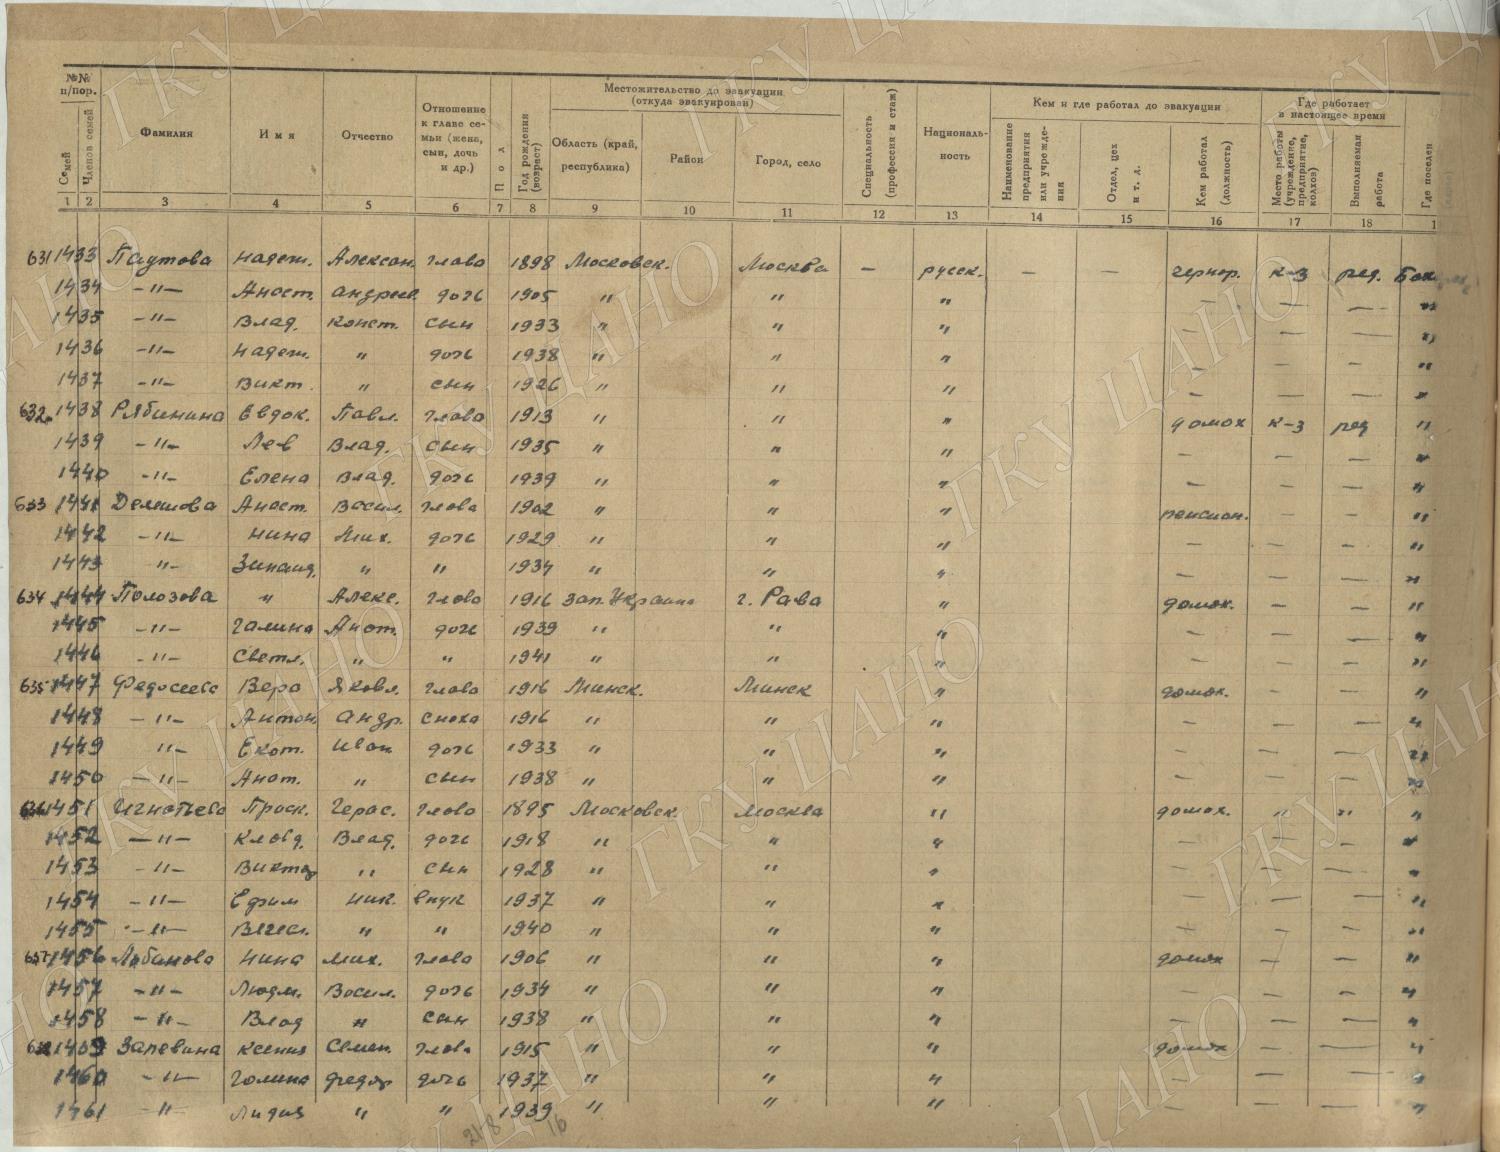 №№ п/пор.
Семей
Членов семей
Фамилия
Имя
Отчество
Отношение к главе семьи (жена, сын, дочь и др.)
Пол
Год рождения (возраст)
Местожительство до эвакуации (откуда эвакуирован)
Область (край, республика)
Район
Город, село
Специальность (профессия и стаж)
Националь-ность
Кем и где работал до эвакуации
Наименование предприятия или учрежде-ния
Отдел, цех и т. д.
Кем работал (должность)
Где работает в настоящее время
Место работы (учреждение, предприятие, колхоз)
Выполняемая работа
Где поселен
1 2 3 4 5 6 7 8 9 10 11 12 13 14 15 16 17 18 1
631 1433 Паутова Надеж. Алексан. глава 1898 Московск. Москва — русск. — — чернор. к-з ряд.
1434 -"- Анаст. Андреев. дочь 1905 " " " — — — "
1435 -"- Влад. Конст. сын 1933 " " " — — — "
1436 -"- Надеж. " дочь 1938 " " " — — — "
1437 -"- Викт. " сын 1926 " " " — — — "
632 1438 Рябинина Евдок. Павл. глава 1913 " " " домох к-з ряд "
1439 -"- Лев Влад. сын 1935 " " " — — — "
1440 -"- Елена Влад. дочь 1939 " " " — — — "
633 1441 Демешова Анаст. Васил. глава 1902 " " " пенсион. — — "
1442 -"- Нина Мих. дочь 1929 " " " — — — "
1443 -"- Зинаид. " " 1934 " " " — — — "
634 1444 Полозова " Алекс. глава 1916 Зап. Украина г. Рава " домох. — — "
1445 -"- Галина Анат. дочь 1939 " " " — — — "
1446 -"- Светл. " " 1941 " " " — — — "
635 1447 Федосеева Вера Яковл. глава 1916 Минск. Минск " домох. — — "
1448 -"- Антон. Андр. сноха 1916 " " " — — — "
1449 "- Екат. Иван дочь 1933 " " " — — — "
1450 -"- Анат. " сын 1938 " " " — — — "
636 1451 Игнатьева Праск. Герас. глава 1895 Московск. Москва " домох. " " "
1452 -"- Клавд. Влад. дочь 1918 " " " — — — "
1453 -"- Виктор " сын 1928 " " " — — — "
1454 -"- Ефим Ник. внук 1937 " " " — — — "
1455 -"- " " 1940 " " " — — — "
637 1456 Лобанова Нина Мих. глава 1906 " " " домох — — "
1457 -"- Людм. Васил. дочь 1934 " " " — — — "
1458 -"- Влад " сын 1938 " " " — — — "
638 1459 Запевина Ксения Семен. глава 1915 " " " домох — — "
1460 -"- Галина Федор дочь 1937 " " " — — — "
1461 -"- Лидия " " 1939 " " " — — — "
21-8 16
ГКУ ЦАНО